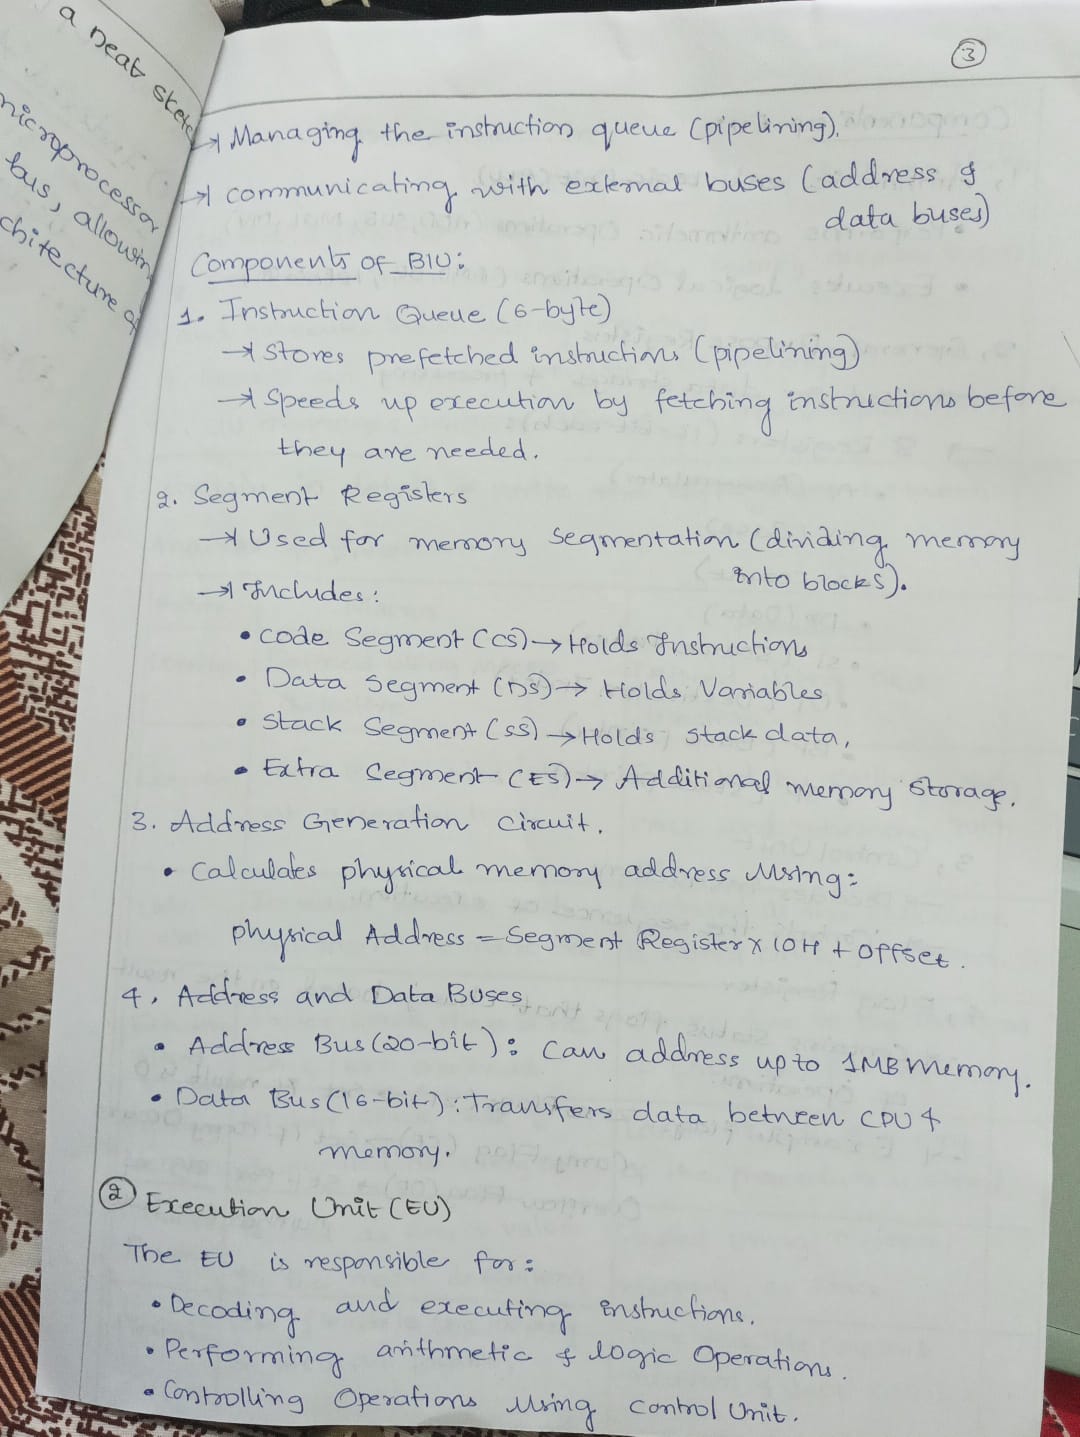 a neat sketch
microprocessor
bus, allowing
chitecture of
3
→ Managing the instruction queue (pipelining).
→ communicating with external buses (address &
data buses)
Components of BIU:
1. Instruction Queue (6-byte)
→ Stores prefetched instructions (pipelining)
→ Speeds up execution by fetching instructions before
they are needed.
2. Segment Registers
→ Used for memory segmentation (dividing memory
into blocks).
→ Includes:
• Code Segment (CS) → Holds Instructions
• Data Segment (DS) → Holds Variables
• Stack Segment (SS) → Holds stack data,
• Extra Segment (ES) → Additional memory storage.
3. Address Generation Circuit.
• Calculates physical memory address using:
physical Address = Segment Register x 10H + Offset.
4. Address and Data Buses
• Address Bus (20-bit): Can address up to 1MB memory.
• Data Bus (16-bit): Transfers data between CPU &
memory.
2 Execution Unit (EU)
The EU is responsible for:
• Decoding and executing instructions.
• Performing arithmetic & logic Operations.
• Controlling Operations using control Unit.